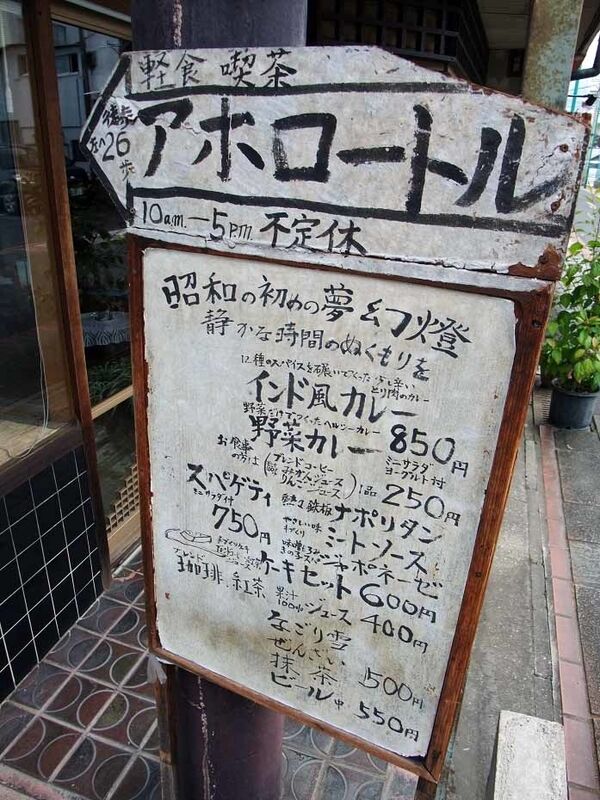 軽食 喫茶
アホロートル
徒歩
26
歩
10a.m.—5p.m. 不定休
昭和の初めの夢幻燈
静かな時間のぬくもりを
12種のスパイスを
とり肉のカレー
インド風カレー
野菜だけでつくったヘルシーカレー
野菜カレー 850円
ミニサラダ
ヨーグルト付
お食事
の方は
ブレンドコーヒー
みかんジュース
りんごジュース
1品 250円
スパゲティ
ミニサラダ付
750円
熱々鉄板 ナポリタン
やさしい味
手づくり
ミートソース
ジャポネーゼ
ケーキセット 600円
ブレンド
珈琲・紅茶 果汁
100% ジュース 400円
なごり雪
ぜんざい
抹茶 500円
ビール 中 550円